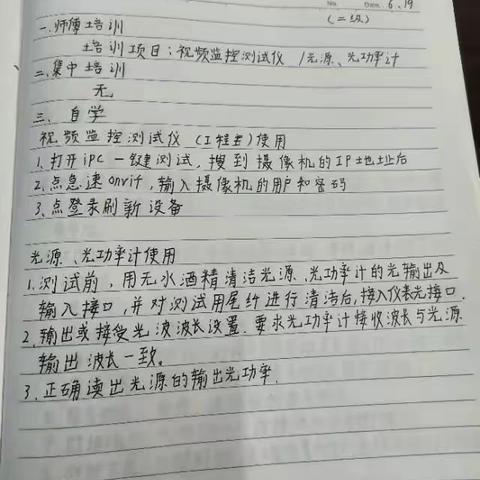 No. Date. 6.19
(二级)
一.师傅培训
培训项目:视频监控测试仪 /光源、光功率计
二.集中培训
无
三、自学
视频监控测试仪(工程宝)使用
1.打开ipc一键测试,搜到摄像机的IP地址后
2.点急速onvif,输入摄像机的用户和密码
3.点登录刷新设备
光源、光功率计使用
1.测试前,用无水酒精清洁光源、光功率计的光输出及
输入接口,并对测试用尾纤进行清洁后,接入仪表光接口.
2.输出或接受光波波长设置.要求光功率计接收波长与光源
输出波长一致。
3.正确读出光源的输出光功率.